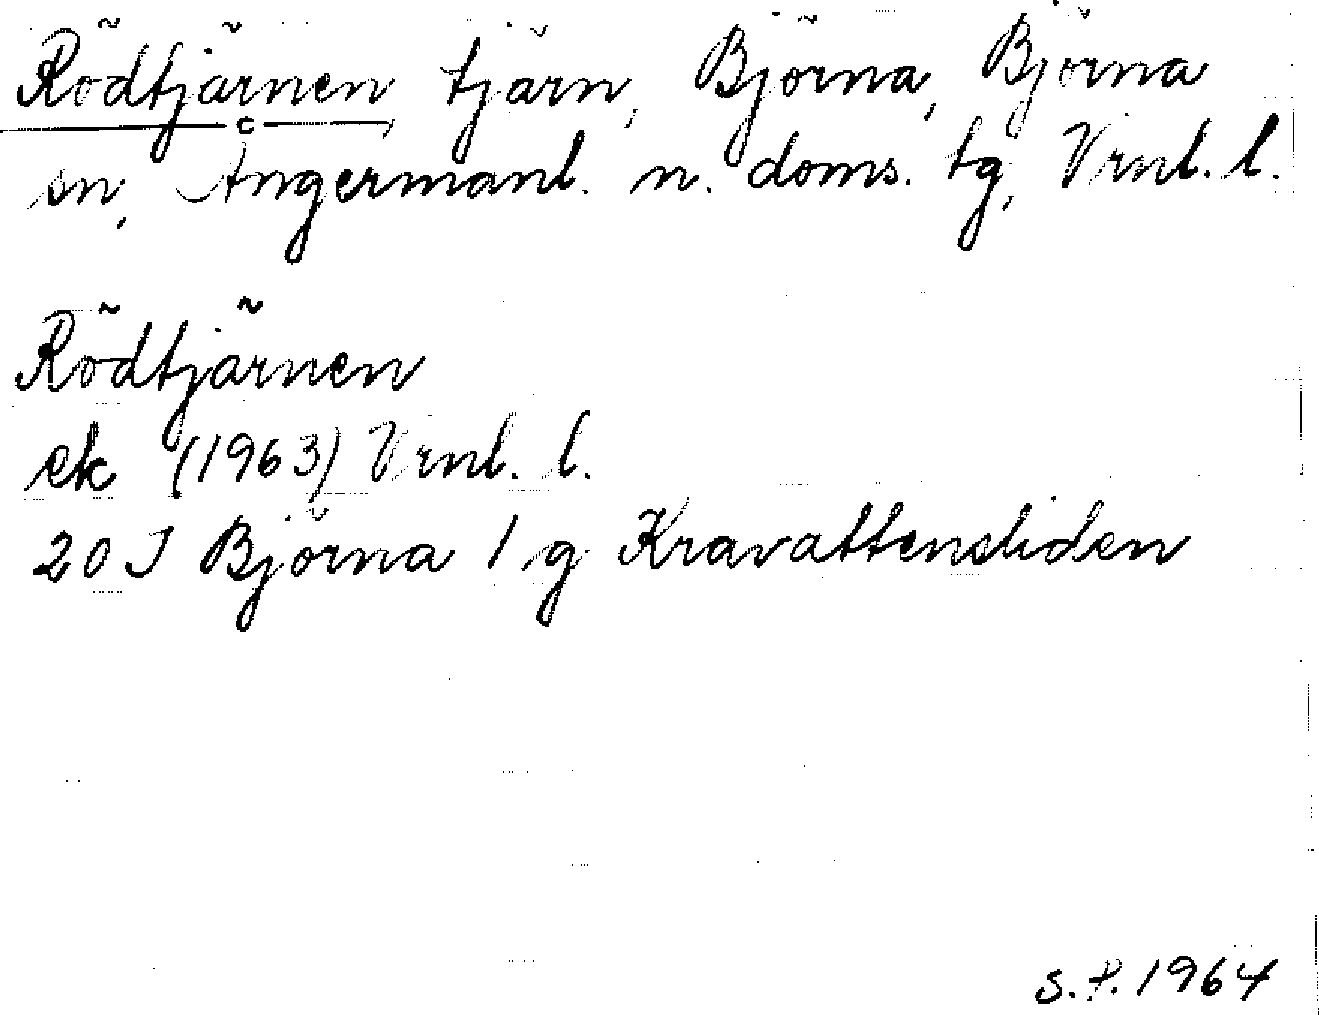 Rödtjärnen, tjärn, Björna, Björna
sn, Ångermanl. n. doms. tg, Vrnl. l.
Rödtjärnen
ek (1963) Vrnl. l.
20 J Björna 1 g Kravattensliden
S.P. 1964